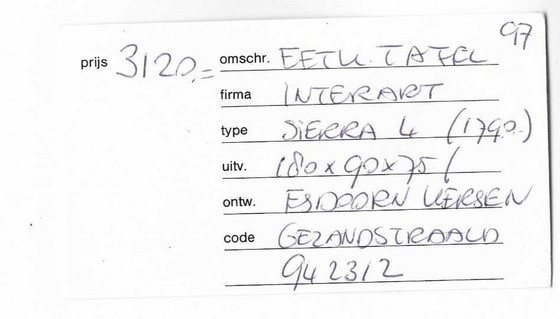 97
prijs 3120,= omschr. EETK. TAFEL
firma INTERART
type SIERRA 4 (1790.)
uitv. 180x90x75 /
ontw. ESDOORN KERSEN
code GEZANDSTRAALD
942312